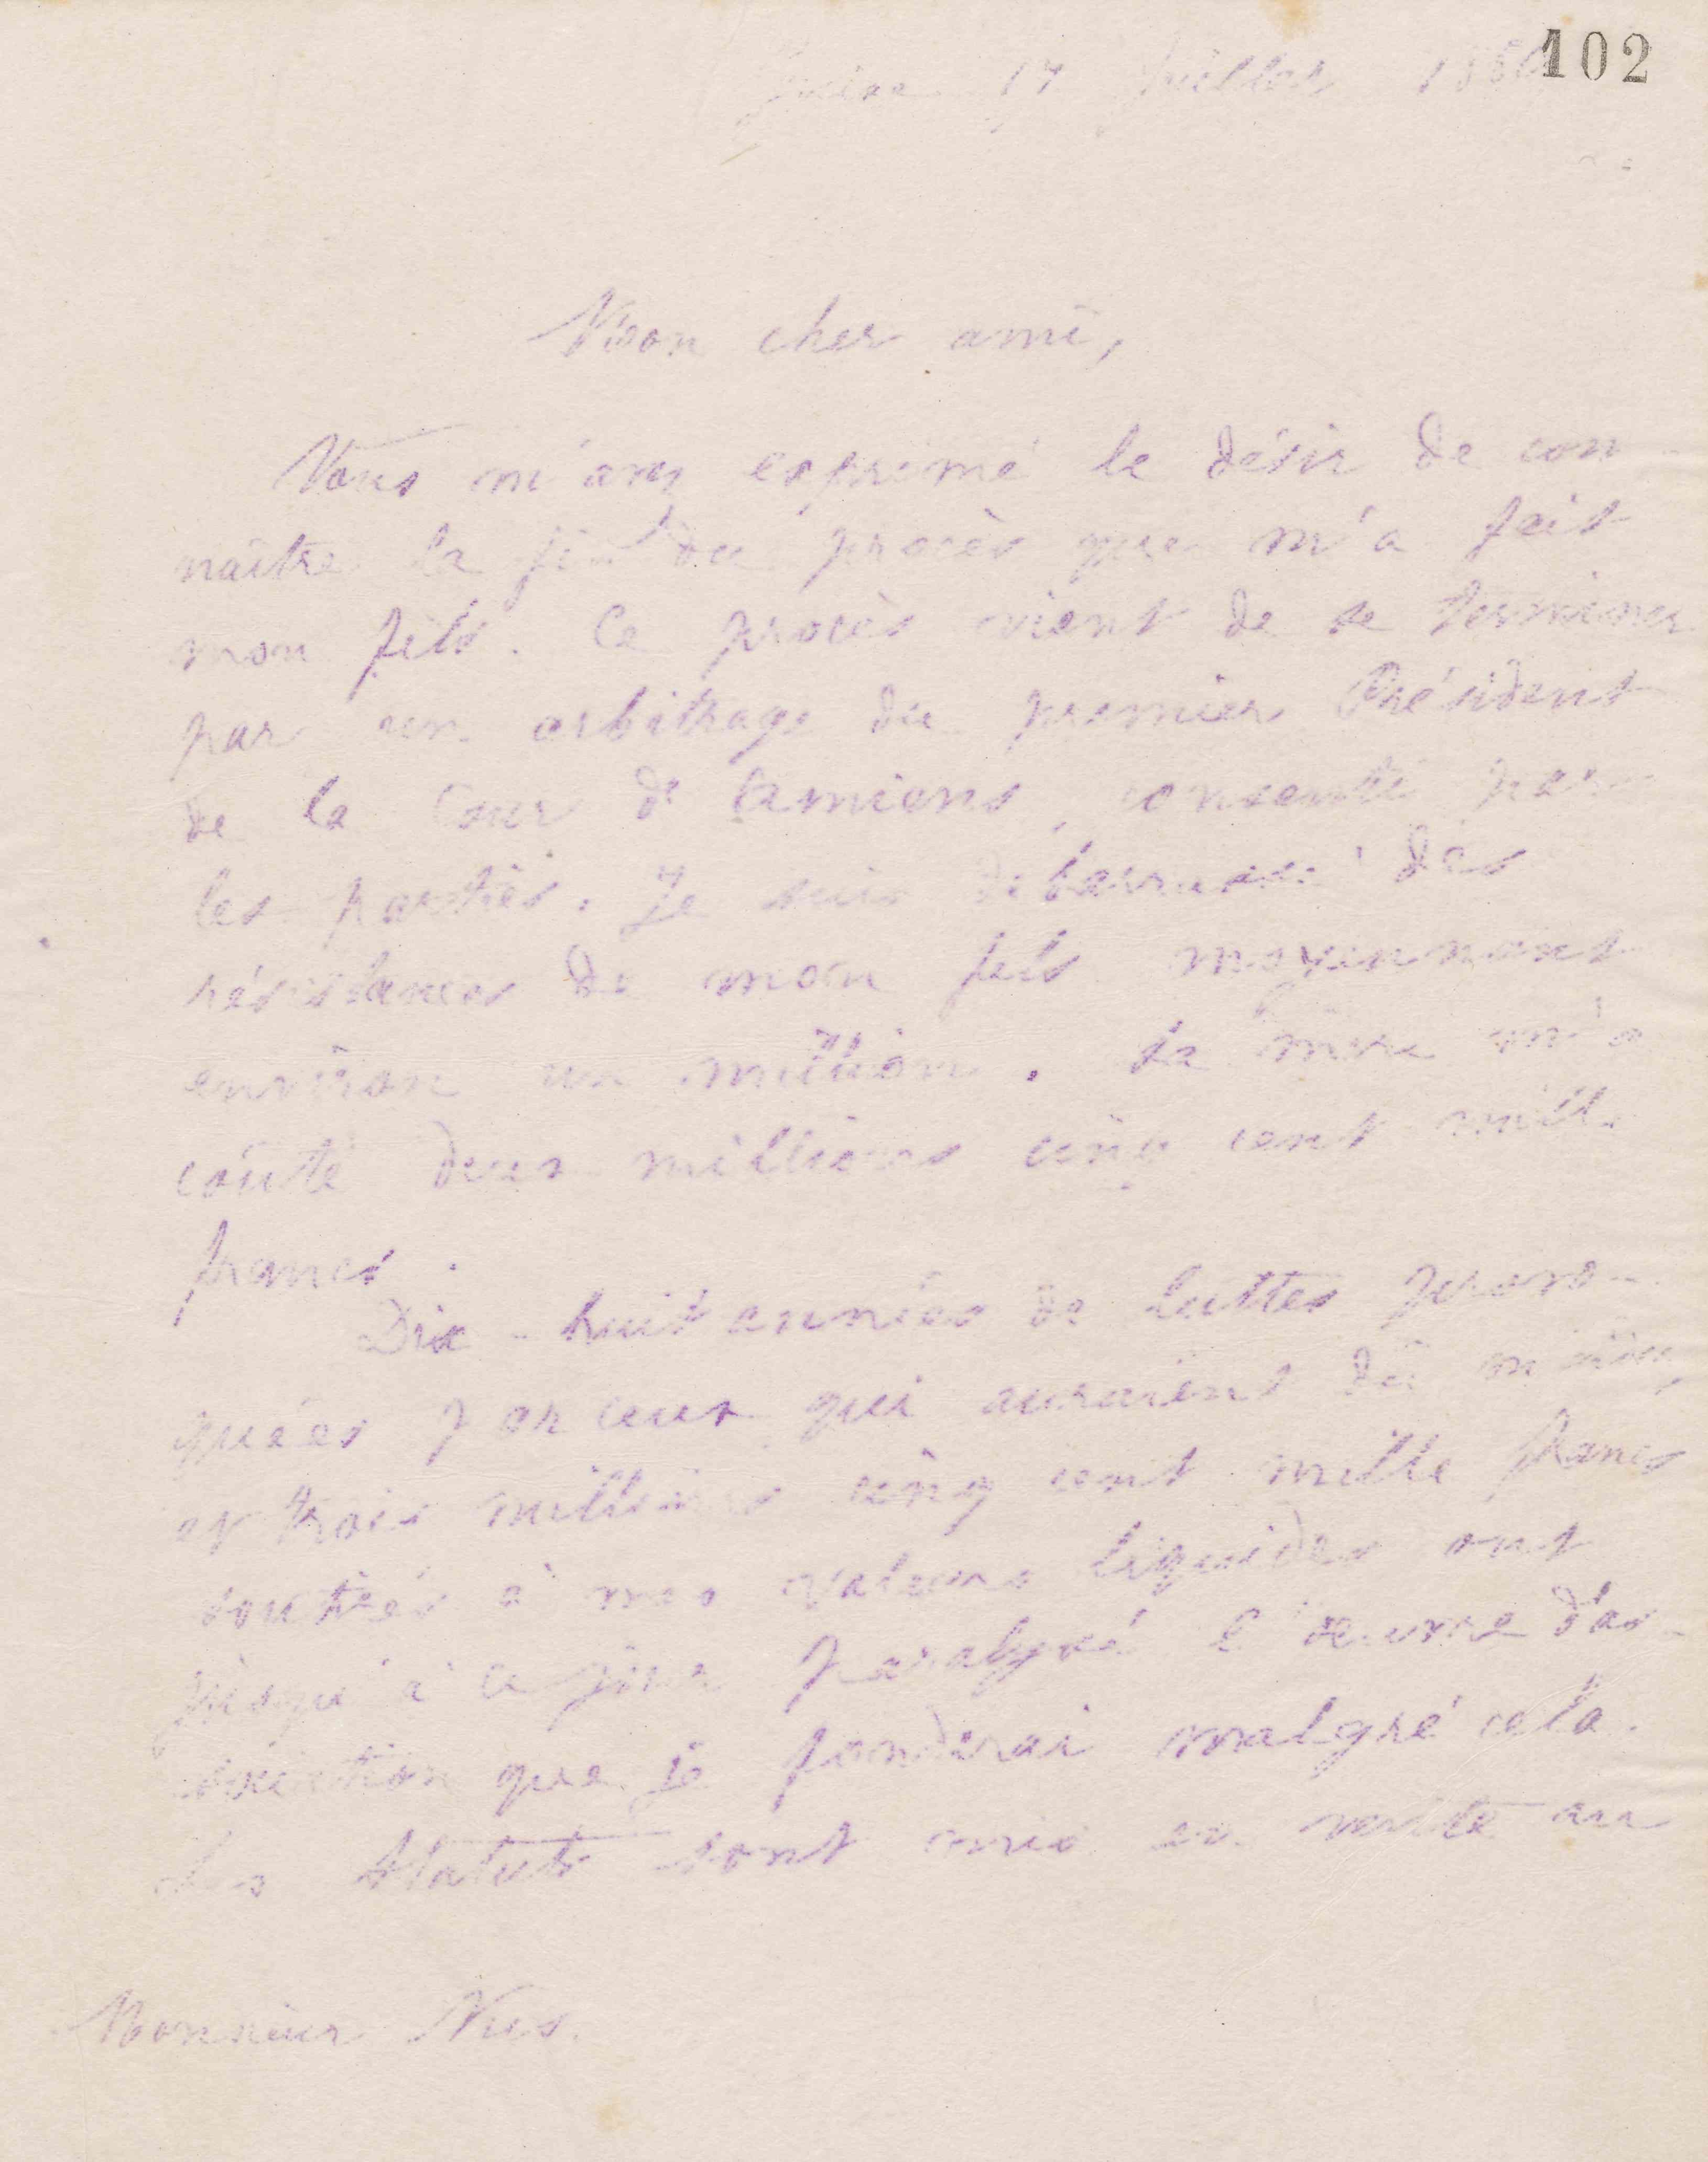 102
Guise 17 Juillet
Mon cher ami,
Vous m'avez exprimé le désir de con
naître la fin du procès que m'a fait
mon fils. Ce procès vient de se terminer
par un arbitrage du premier Président
de la Cour d'Amiens, consenti par
les parties. Je suis débarrassé des
résistances de mon fils moyennant
environ un million. Sa mère m'a
coûté deux millions cinq cent mille
francs.
Dix-huit années de luttes provo-
quées par ceux qui auraient dû m'aider,
et trois millions cinq cent mille francs
soutirés à mes valeurs liquides ont
jusqu'à ce jour paralysé l'œuvre d'as-
sociation que je fonderai malgré cela.
Les Statuts sont mis en vente au
Monsieur Nus.